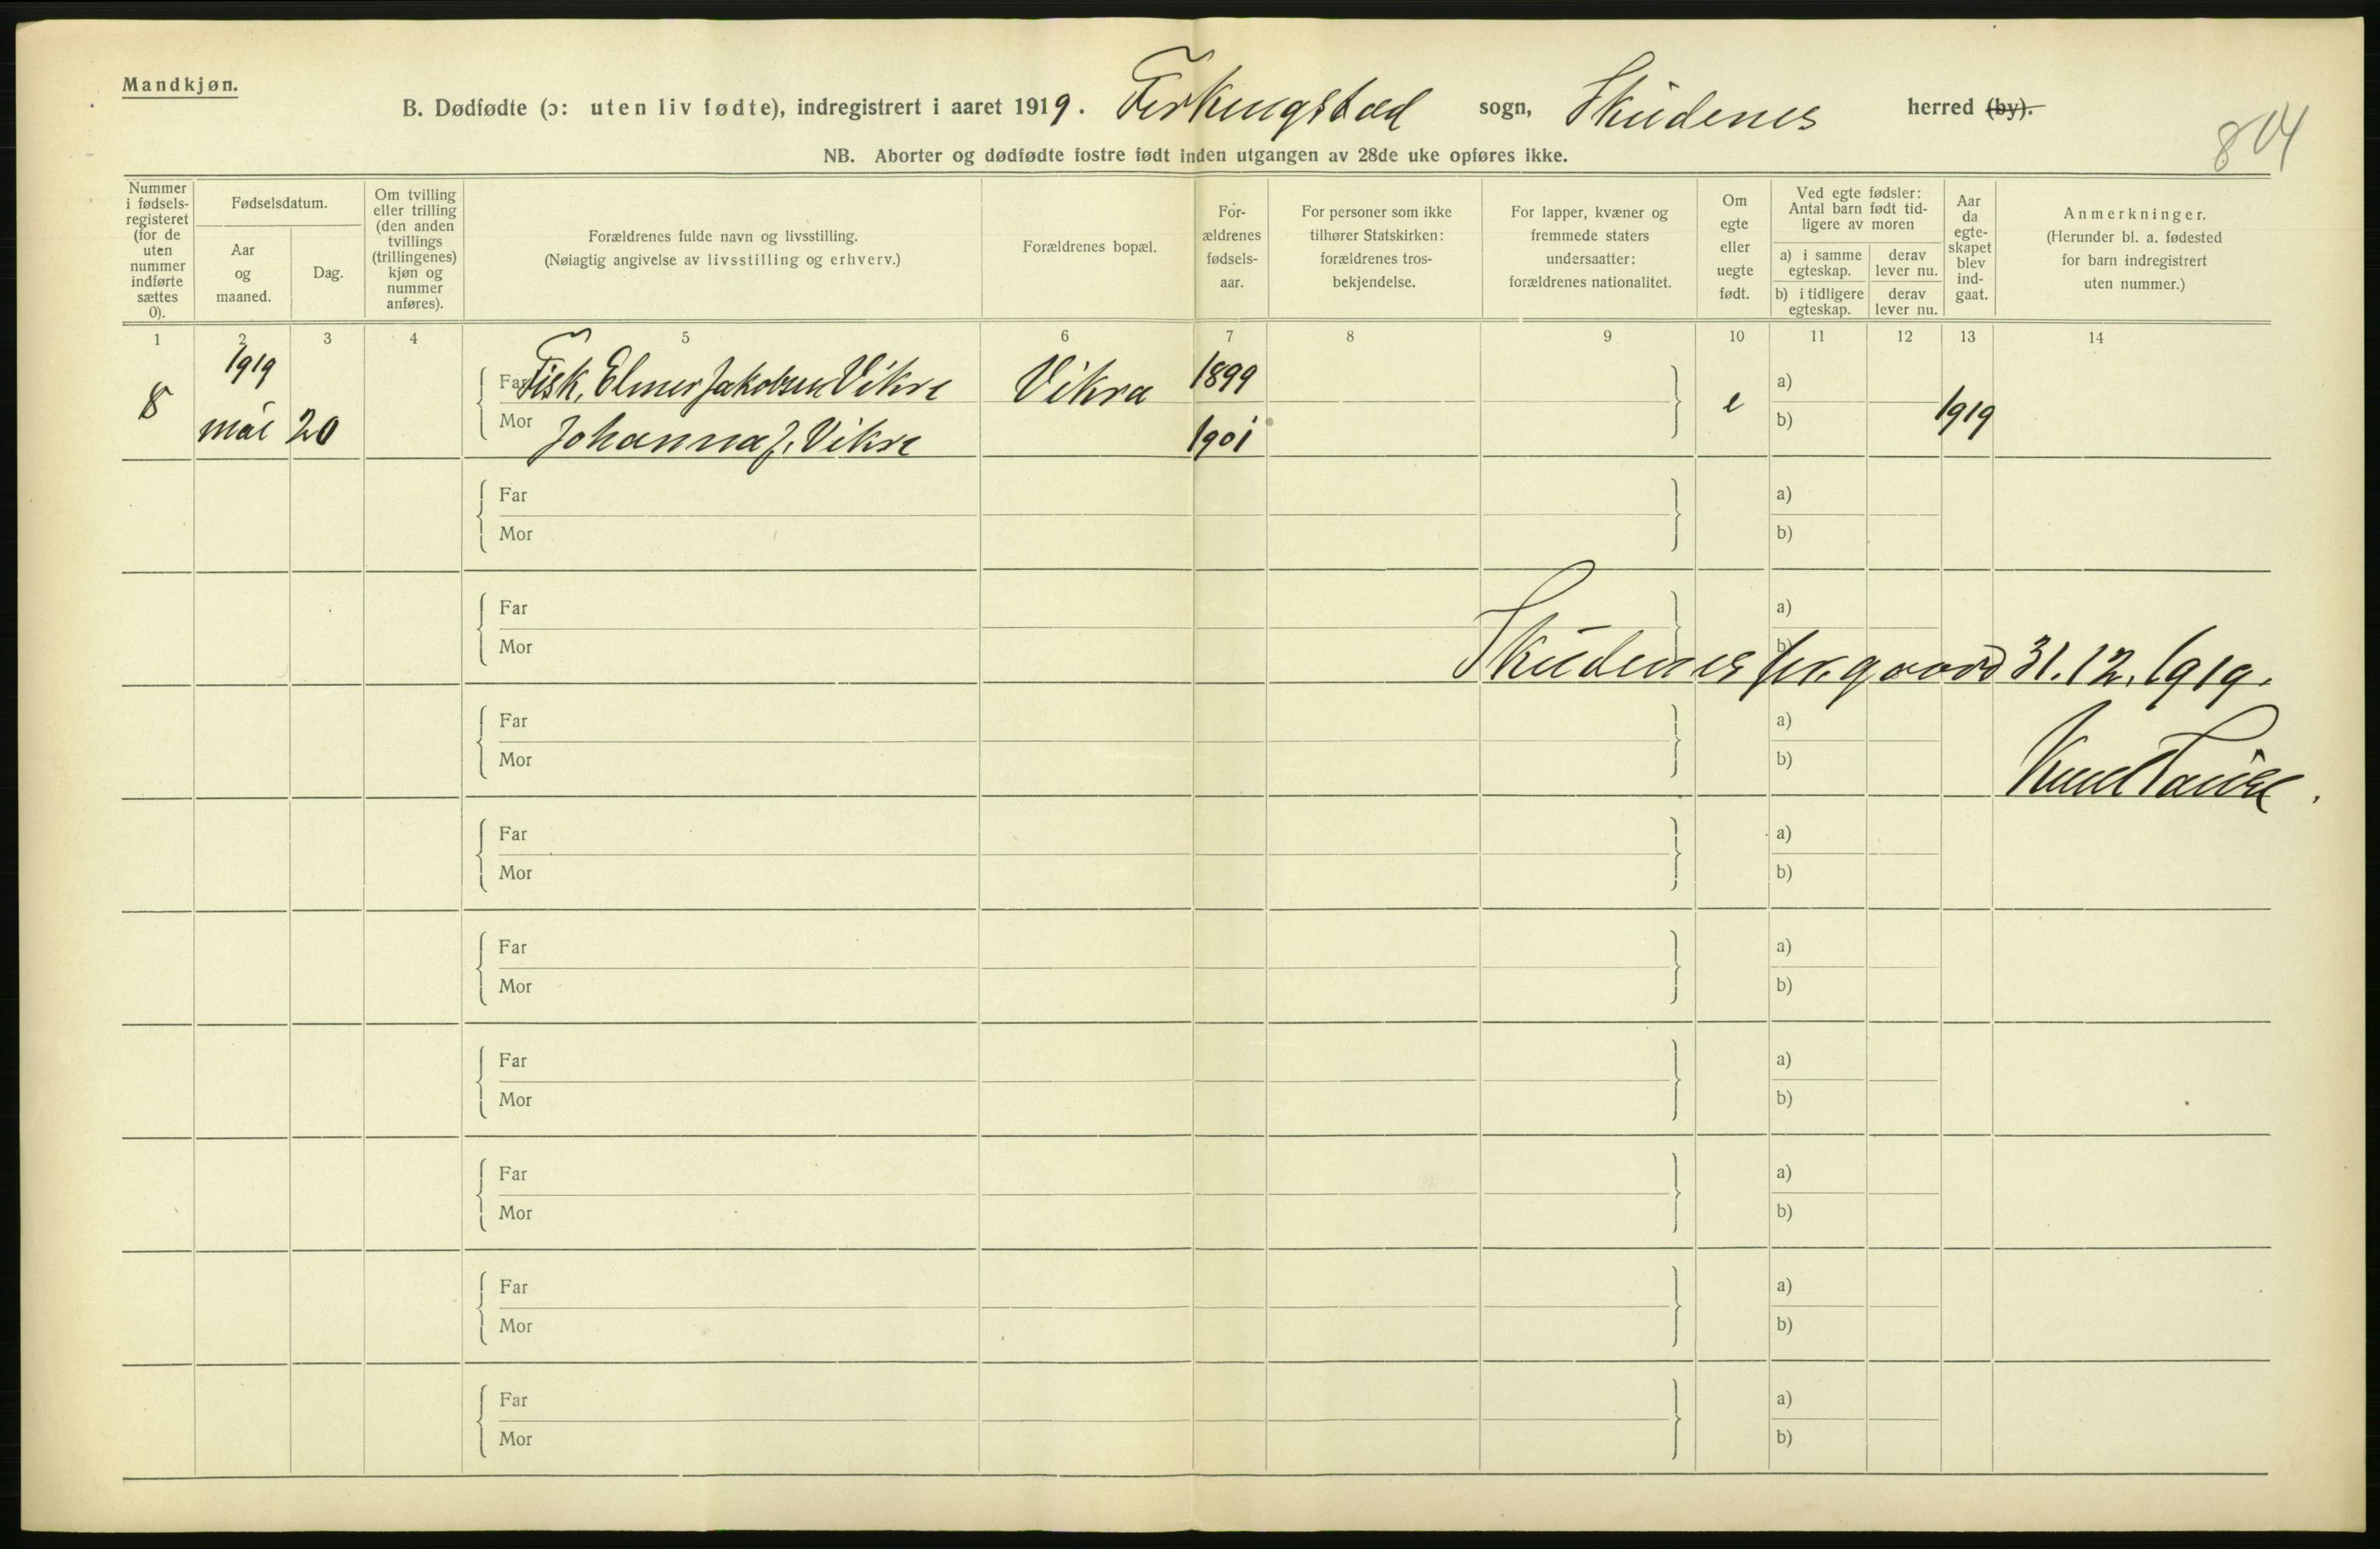 Mandkjøn.
B. Dødfødte (ɔ: uten liv fødte), indregistrert i aaret 1919. Ferkingstad sogn, Skudenes herred (by).
804
NB. Aborter og dødfødte fostre født inden utgangen av 28de uke opføres ikke.
Nummer
i fødsels-
registeret
(for de
uten
nummer
indførte
sættes
0).
Fødselsdatum.
Aar
og
maaned.
Dag.
Om tvilling
eller trilling
(den anden
tvillings
(trillingenes)
kjøn og
nummer
anføres).
Forældrenes fulde navn og livsstilling.
(Nøiagtig angivelse av livsstilling og erhverv.)
Forældrenes bopæl.
For-
ældrenes
fødsels-
aar.
For personer som ikke
tilhører Statskirken:
forældrenes tros-
bekjendelse.
For lapper, kvæner og
fremmede staters
undersaatter:
forældrenes nationalitet.
Om
egte
eller
uegte
født.
Ved egte fødsler:
Antal barn født tid-
ligere av moren
a) i samme
egteskap.
derav
lever nu.
b) i tidligere
egteskap.
derav
lever nu.
Aar
da
egte-
skapet
blev
ind-
gaat.
Anmerkninger.
(Herunder bl. a. fødested
for barn indregistrert
uten nummer.)
1 2 3 4 5 6 7 8 9 10 11 12 13 14
1919
8 mai 20
Far Fisk. Elmer Jakobsen Vikre Vikra 1899 e a) 1919
Mor Johanna J. Vikre 1901 b)
Far a)
Mor b)
Far a)
Mor b)
Skudenes pr.gaard 31.12.1919.
Far a)
Mor b)
Knud
Far a)
Mor b)
Far a)
Mor b)
Far a)
Mor b)
Far a)
Mor b)
Far a)
Mor b)
Far a)
Mor b)